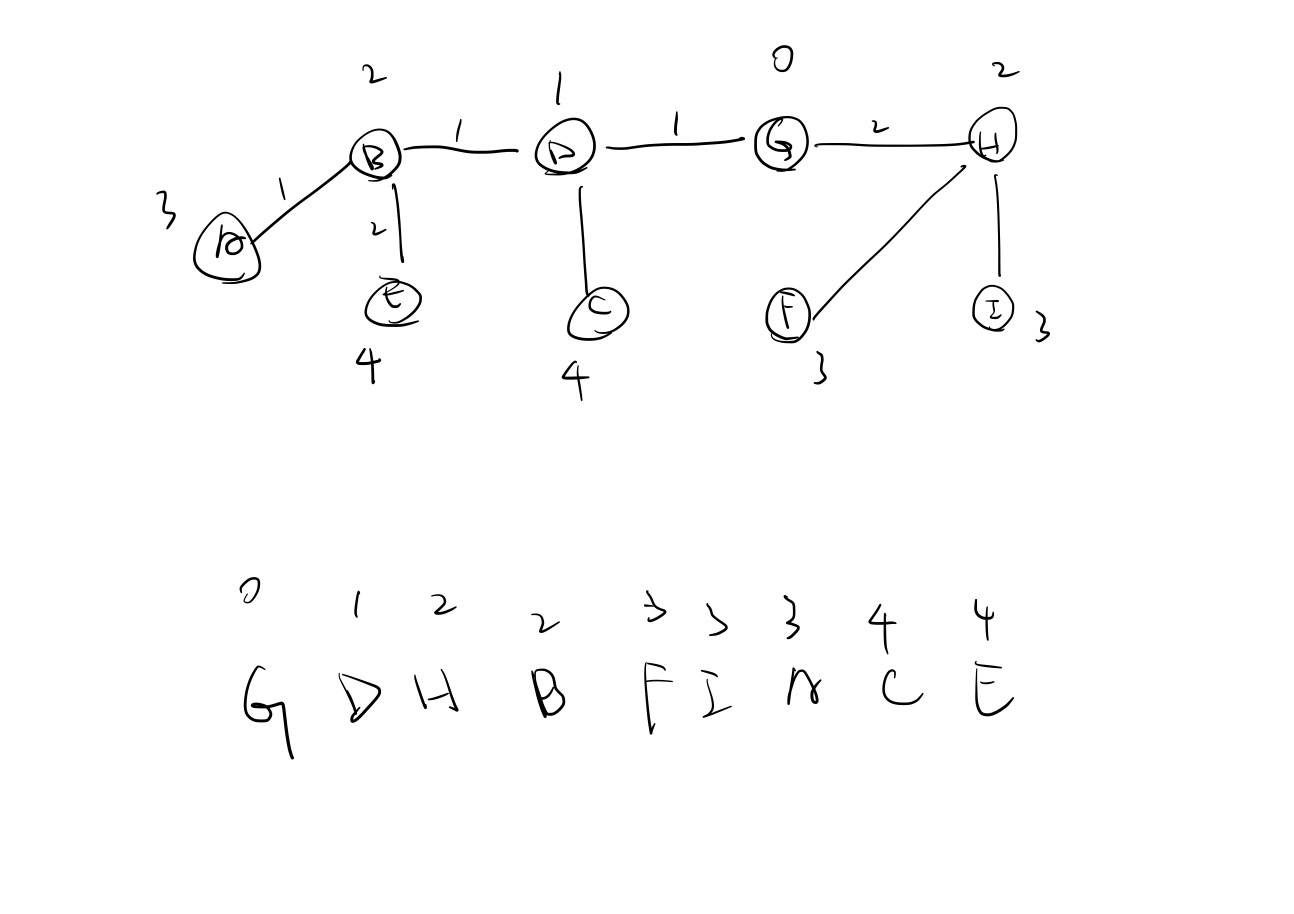 2 1 0 2
B 1 D 1 G 2 H
3 1
A 2
E C F I 3
4 4 3
0 1 2 2 3 3 3 4 4
G D H B F I A C E